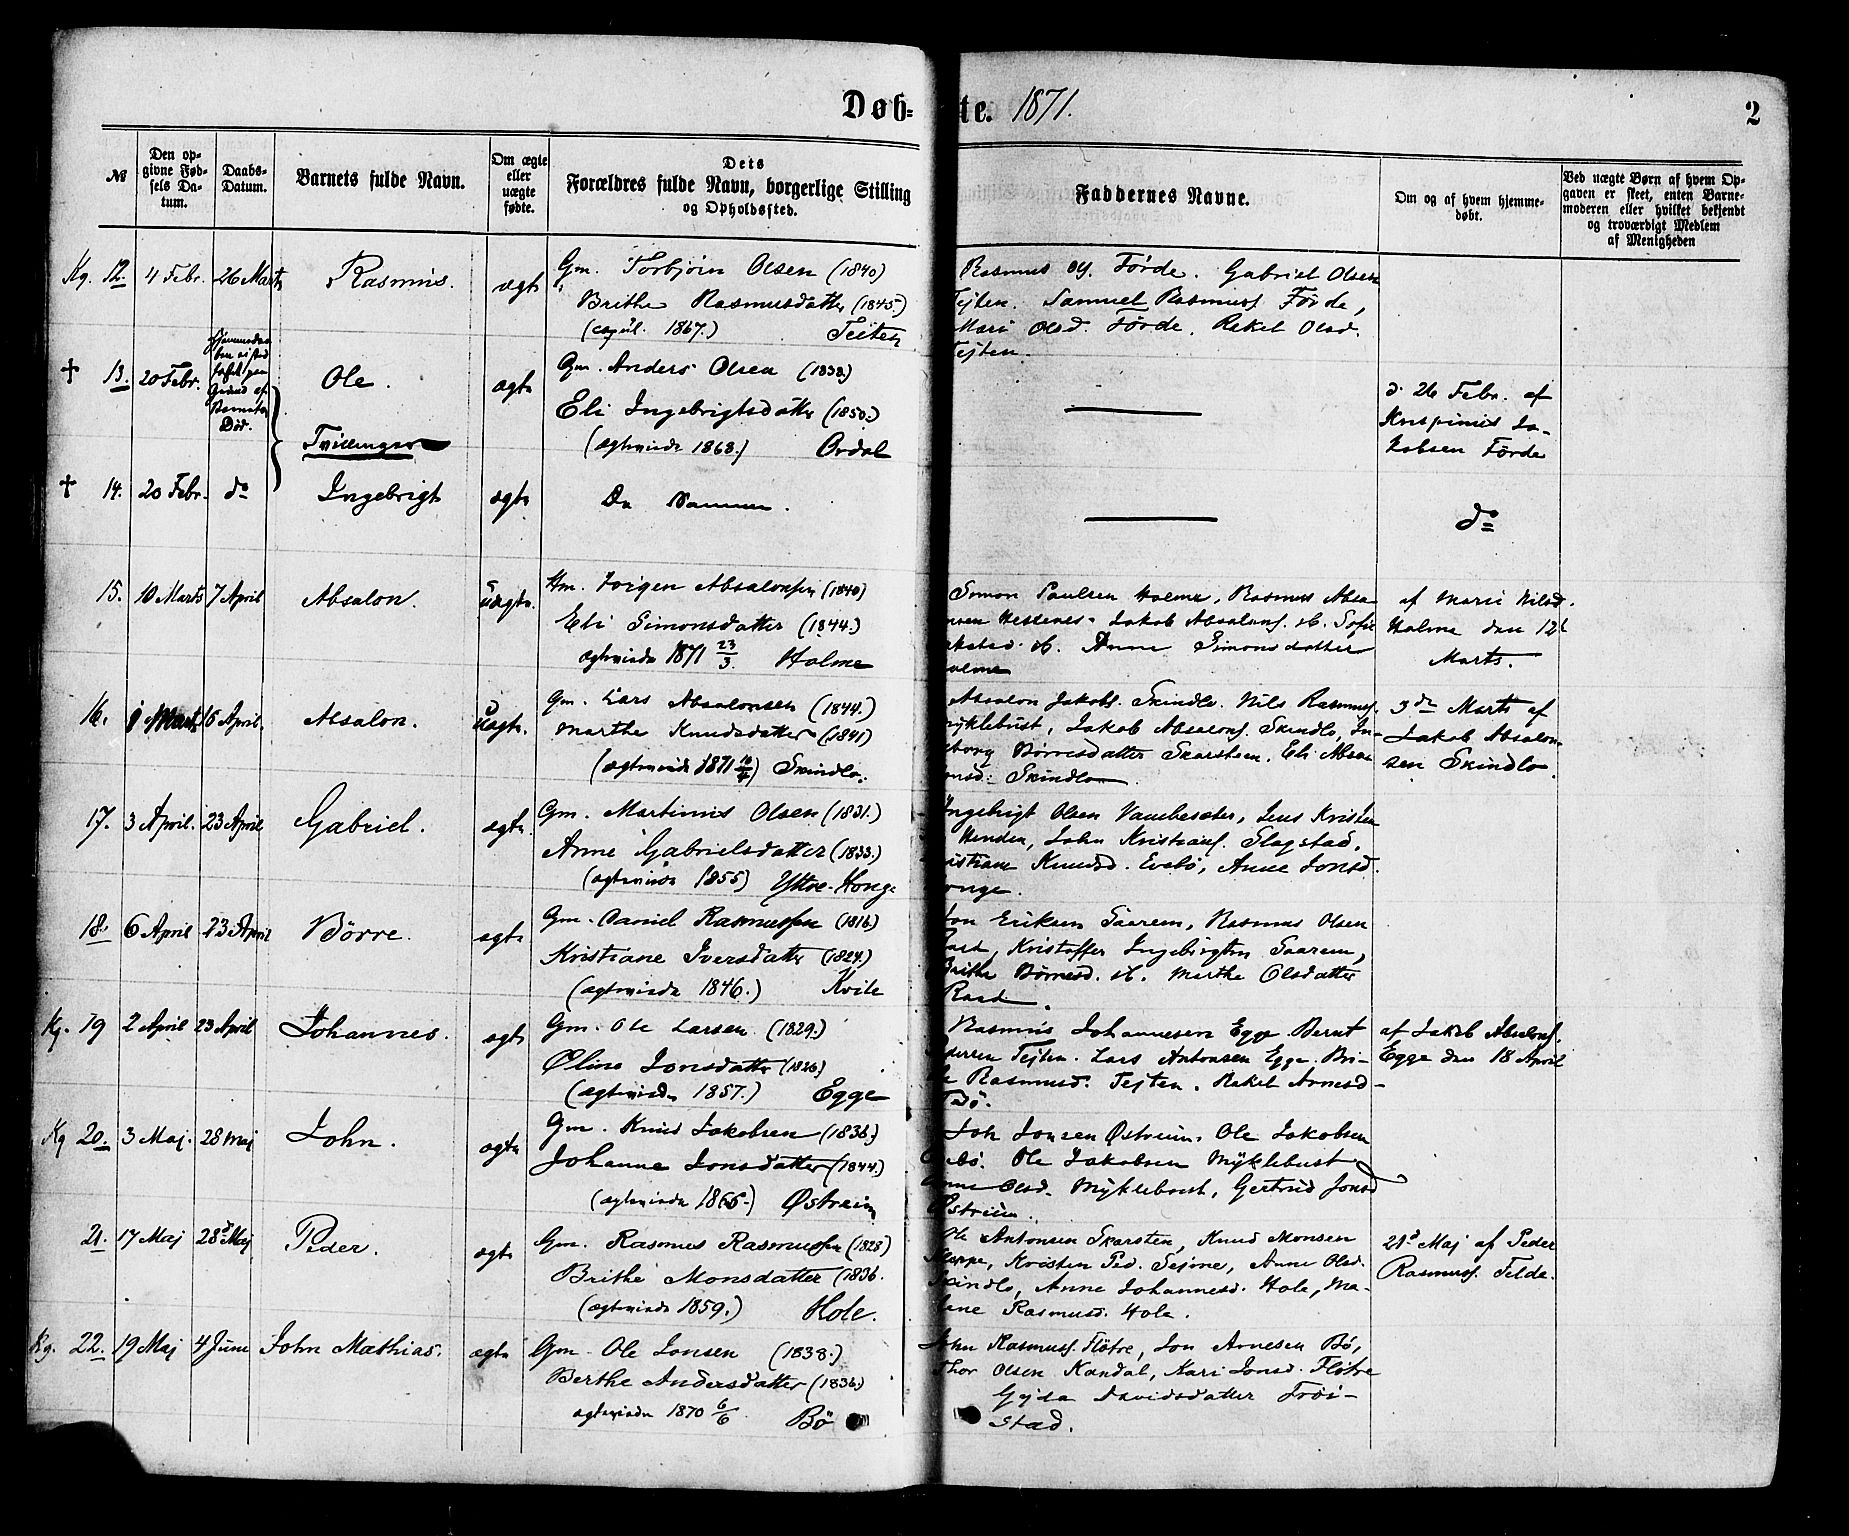 Døb=
te. 1871.
2
№
Den op-
givne Fød-
sels Da-
tum.
Daabs-
Datum.
Barnets fulde Navn.
Om ægte
eller
uægte
fødte.
Dets
Forældres fulde Navn, borgerlige Stilling
og Opholdssted.
Faddernes Navne.
Om og af hvem hjemme-
døbt.
Ved uægte Børn af hvem Op-
gaven er skeet, enten Barne-
moderen eller hvilket bekjendt
og troværdigt Medlem
af Menigheden
Kg. 12. 4 Febr. 26 Marts Rasmus. ægte
Gm. Torbjørn Olsen (1840)
Brithe Rasmusdatter (1845)
(copul. 1867.) Teiten
Rasmus og. Førde. Gabriel Olsen
Tejten. Samuel Rasmuss. Førde,
Mari Olsd. Førde. Rakel Olsd.
Tejten.
† 13. 20 Febr. Ole. ægte
Død.
Tvillinger
Gm. Anders Olsen (1838)
Eli Ingebrigtsdatter (1850.)
(ægteviede 1868.) Ordal
d. 26 Febr. af
Krispinus Ja-
kobsen Førde
† 14. 20 Febr. do Ingebrigt ægte
De Samme.
do
15. 10 Marts 7 April Absalon. uægte.
Um. Jørgen Absalonsen (1840)
Eli Simonsdatter (1844.)
ægteviede 1871 23/3 Holme
Simon Paulsen Holme, Rasmus Absa
Hessenes. Jakob Absalons. st. Sofie
st. Anne Simonsdatter
Holme
af Marie Nilsd.
Holme den 12te
Marts.
16. Marts 16 April. Absalon. uægte.
Gm. Lars Absalonsen (1844.)
Marthe Knudsdatter (1841)
(ægteviede 1871) Skindlo.
Absalon Jakobs. Skindlo. Nils Rasmuss.
Myklebust, Jakob Absalons. Skindlo, In-
geborg Børresdatter Skarsten. Eli Absa
lonsd. Skindlo
3de Marts af
Jakob Absalon-
sen Skindlo.
17. 3 April. 23 April Gabriel. ægte.
Gm. Martinus Olsen (1831.)
Anne Gabrielsdatter (1833.)
(ægteviede 1855) Yttre-Honge
Ingebrigt Olsen Vanebesæter, Jens Kristen
Henden, John Kristians. Slagstad,
Kristiane Knudsd. Evebø, Anne Jonsd.
Honge.
18. 6 April 23 April Børre. ægte
Gm. Daniel Rasmussen (1816.)
Kristiane Iversdatter (1824.)
(ægteviede 1846.) Kvile
Jon Eriksen Saarem, Rasmus Olsen
Raad, Kristoffer Ingebrigtsn Saarem,
Brithe Børresd. st. Marthe Olsdatter
Raad.
Kg. 19 2 April 23 April Johannes. ægte
Gm. Ole Larsen (1829.)
Oline Jonsdatter (1826)
(ægteviede 1857.) Egge
Rasmus Johannesen Egge. Bernt
Pedersen Tejten. Lars Antonsen Egge. Bri-
the Rasmusd. Tejten. Rakel Arnesd-
af Jakob Absalons.
Egge den 18 April
Kg 20. 3 Maj. 28 Maj John. ægte
Gm. Knud Jakobsen (1836.)
Johanne Jonsdatter (1844.)
(ægteviede 1866.) Østreim
Joh Jonsen Østreim. Ole Jakobsen
Evebø. Ole Jakobsen Myklebust
Anne Olsd. Myklebust, Gertrud Jonsd
Østreim.
21. 17 Maj 28 Maj Peder. ægte
Gm. Rasmus Rasmussen (1828)
Brithe Monsdatter (1836.
(ægteviede 1859.) Hole.
Ole Antonsen Skarsten, Knud Monsen
Kleppe, Kristen Ped. Sejone, Anne Olsd.
Skindlo, Anne Johannesd. Hole, Ma-
lene Rasmusd. Hole.
21de Maj af Peder
Rasmuss. Felde.
Kg. 22. 19 Maj 4 Juni John Mathias. ægte
Gm. Ole Jonsen (1838.)
Berthe Andersdatter (1836.)
ægteviede 1870 6/6 Bø
John Rasmuss. Fløtre, Jon Arnesen Bø,
Thor Olsen Kandal, Kari Jonsd. Fløtre
Gejda Davidsdatter Trøi-
stad.